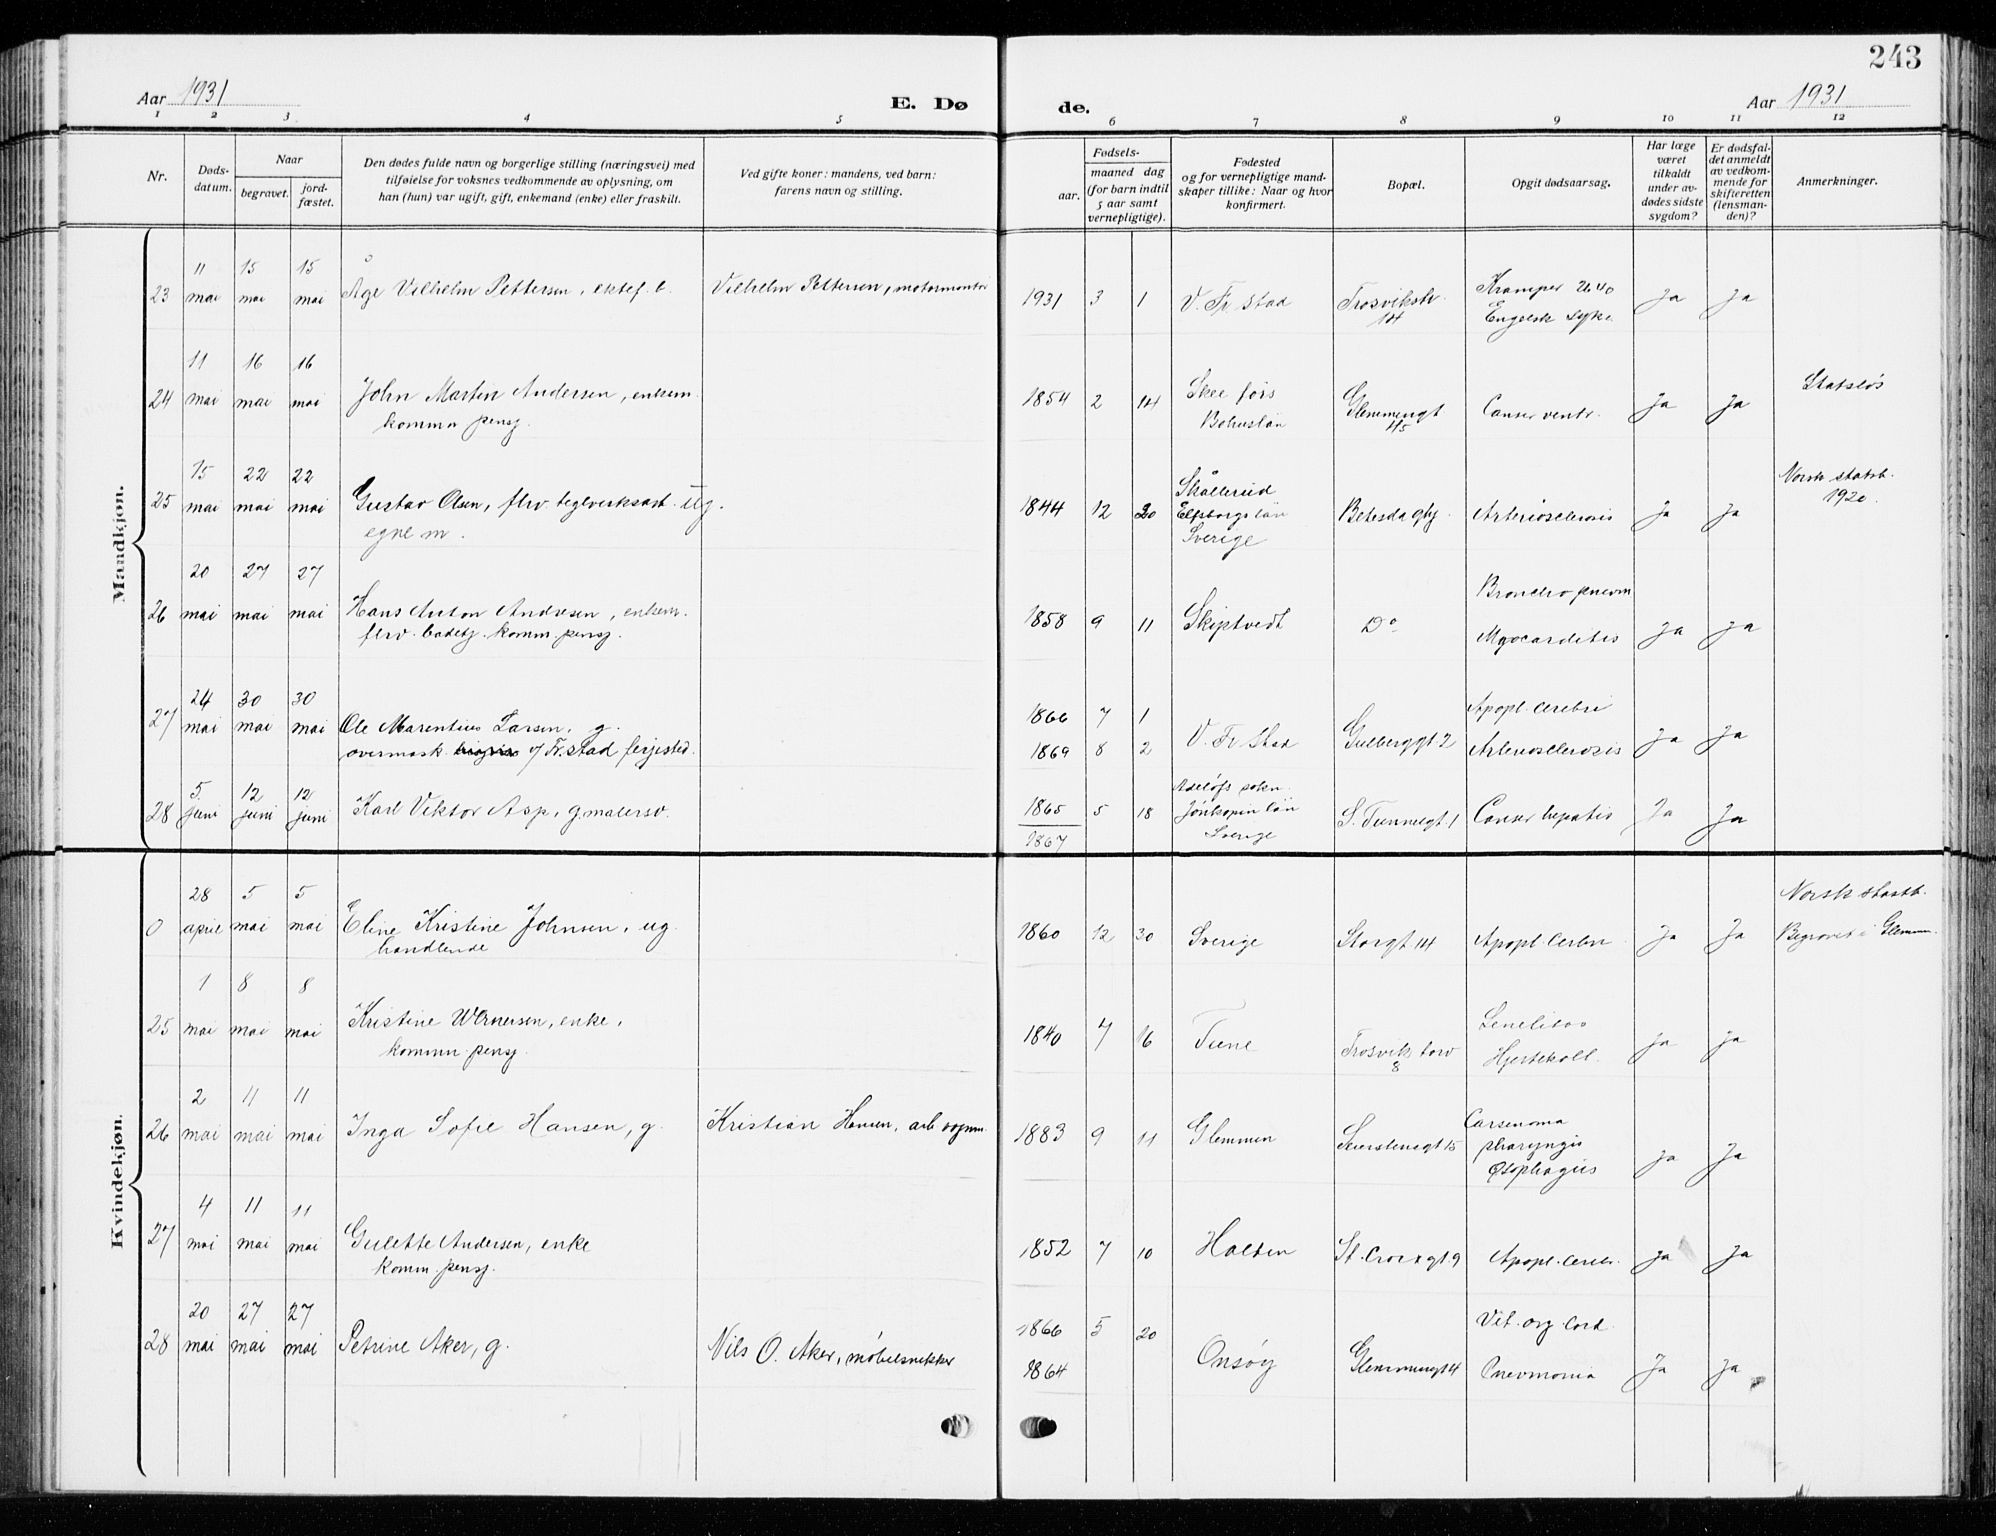 243
Aar 1931
E. Dø
de.
Aar 1931
1 2 3 4 5 6 7 8 9 10 11 12
Nr.
Døds-
datum.
Naar
begravet.
jord-
fæstet.
Den dødes fulde navn og borgerlige stilling (næringsvei) med
tilføielse for voksnes vedkommende av oplysning, om
han (hun) var ugift, gift, enkemand (enke) eller fraskilt.
Ved gifte koner: mandens, ved barn:
farens navn og stilling.
Fødsels-
aar.
maaned dag
(for barn indtil
5 aar samt
vernepligtige).
Fødested
og for vernepligtige mand-
skaper tillike: Naar og hvor
konfirmert.
Bopæl.
Opgit dødsaarsag.
Har læge
været
tilkaldt
under av-
dødes sidste
sygdom?
Er dødsfal-
det anmeldt
av vedkom-
mende for
skifteretten
(lensman-
den)?
Anmerkninger.
Mandkjøn.
23 11 mai 15 mai 15 mai Åge Vilhelm Pettersen, ektef. b. Vilhelm Pettersen, motormontør 1931 3 1 V. Fr.stad Trosvikstr. 14 Kramper
Engelsk syke Ja Ja
24 11 mai 16 mai 16 mai John Martin Andersen, enkem.
komm. pensj. 1854 2 14 Skeeförs
Bohuslän Glemmengt 45 Canser ventr. Ja Ja Statsløs
25 15 mai 22 mai 22 mai Gustav Olsen, fhv. teglverksarb. ug.
egne m. 1844 12 20 Skållerud
Elfsborgs län
Sverige Betesda glhj. Arteriosclerosis Ja Ja Norsk statsb.
1920.
26 20 mai 27 mai 27 mai Hans Anton Andresen, enkem.
fhv. badebtj. komm. pensj. 1858 9 11 Skiptvedt Do Broncho pnevm
Myocarditis Ja Ja
27 24 mai 30 mai 30 mai Ole Marentius Larsen, g.
overmask. v/ Fr.stad ferjested. 1866 7 1
1869 8 2 V. Fr.stad Gulberggt 2 Apopl. cerebri
Arteriosclerosis Ja Ja
28 5. juni 12 juni 12 juni Karl Viktor Asp, g. malersv. 1865 5 18
1867 Adelöfs sokn.
Jönkopin län
Sverige S. Tunnegt. 1 Canser hepatis Ja Ja
Kvindekjøn.
0 28 april 5 mai 5 mai Eline Kristine Johnsen, ug.
handlende 1860 12 30 Sverige Storgt 14 Apopl. Cerbr. Ja Ja Norsk statsb.
Begravet i Glemmen.
25 1 mai 8 mai 8 mai Kristine Wernersen, enke,
komm. pensj. 1840 7 16 Tune Trosvik torv 8 Senelitas
Hjertekoll. Ja Ja
26 2 mai 11 mai 11 mai Inga Sofie Hansen, g. Kristian Hansen, arb. vognm. 1883 9 11 Glemmen Seierstensgt 15 Carsenoma
pharyngis
Øsophagus Ja Ja
27 4 mai 11 mai 11 mai Gulette Andersen, enke
komm. pensj. 1852 7 10 Halden St. Croixgt. 9 Apopl. cerebr. Ja Ja
28 20 mai 27 mai 27 mai Petrine Aker, g. Nils O. Aker, møbelsnekker 1866 5 20
1864 Onsøy Glemmengt 4 Vit. org. Cord.
Pnevmonia Ja Ja